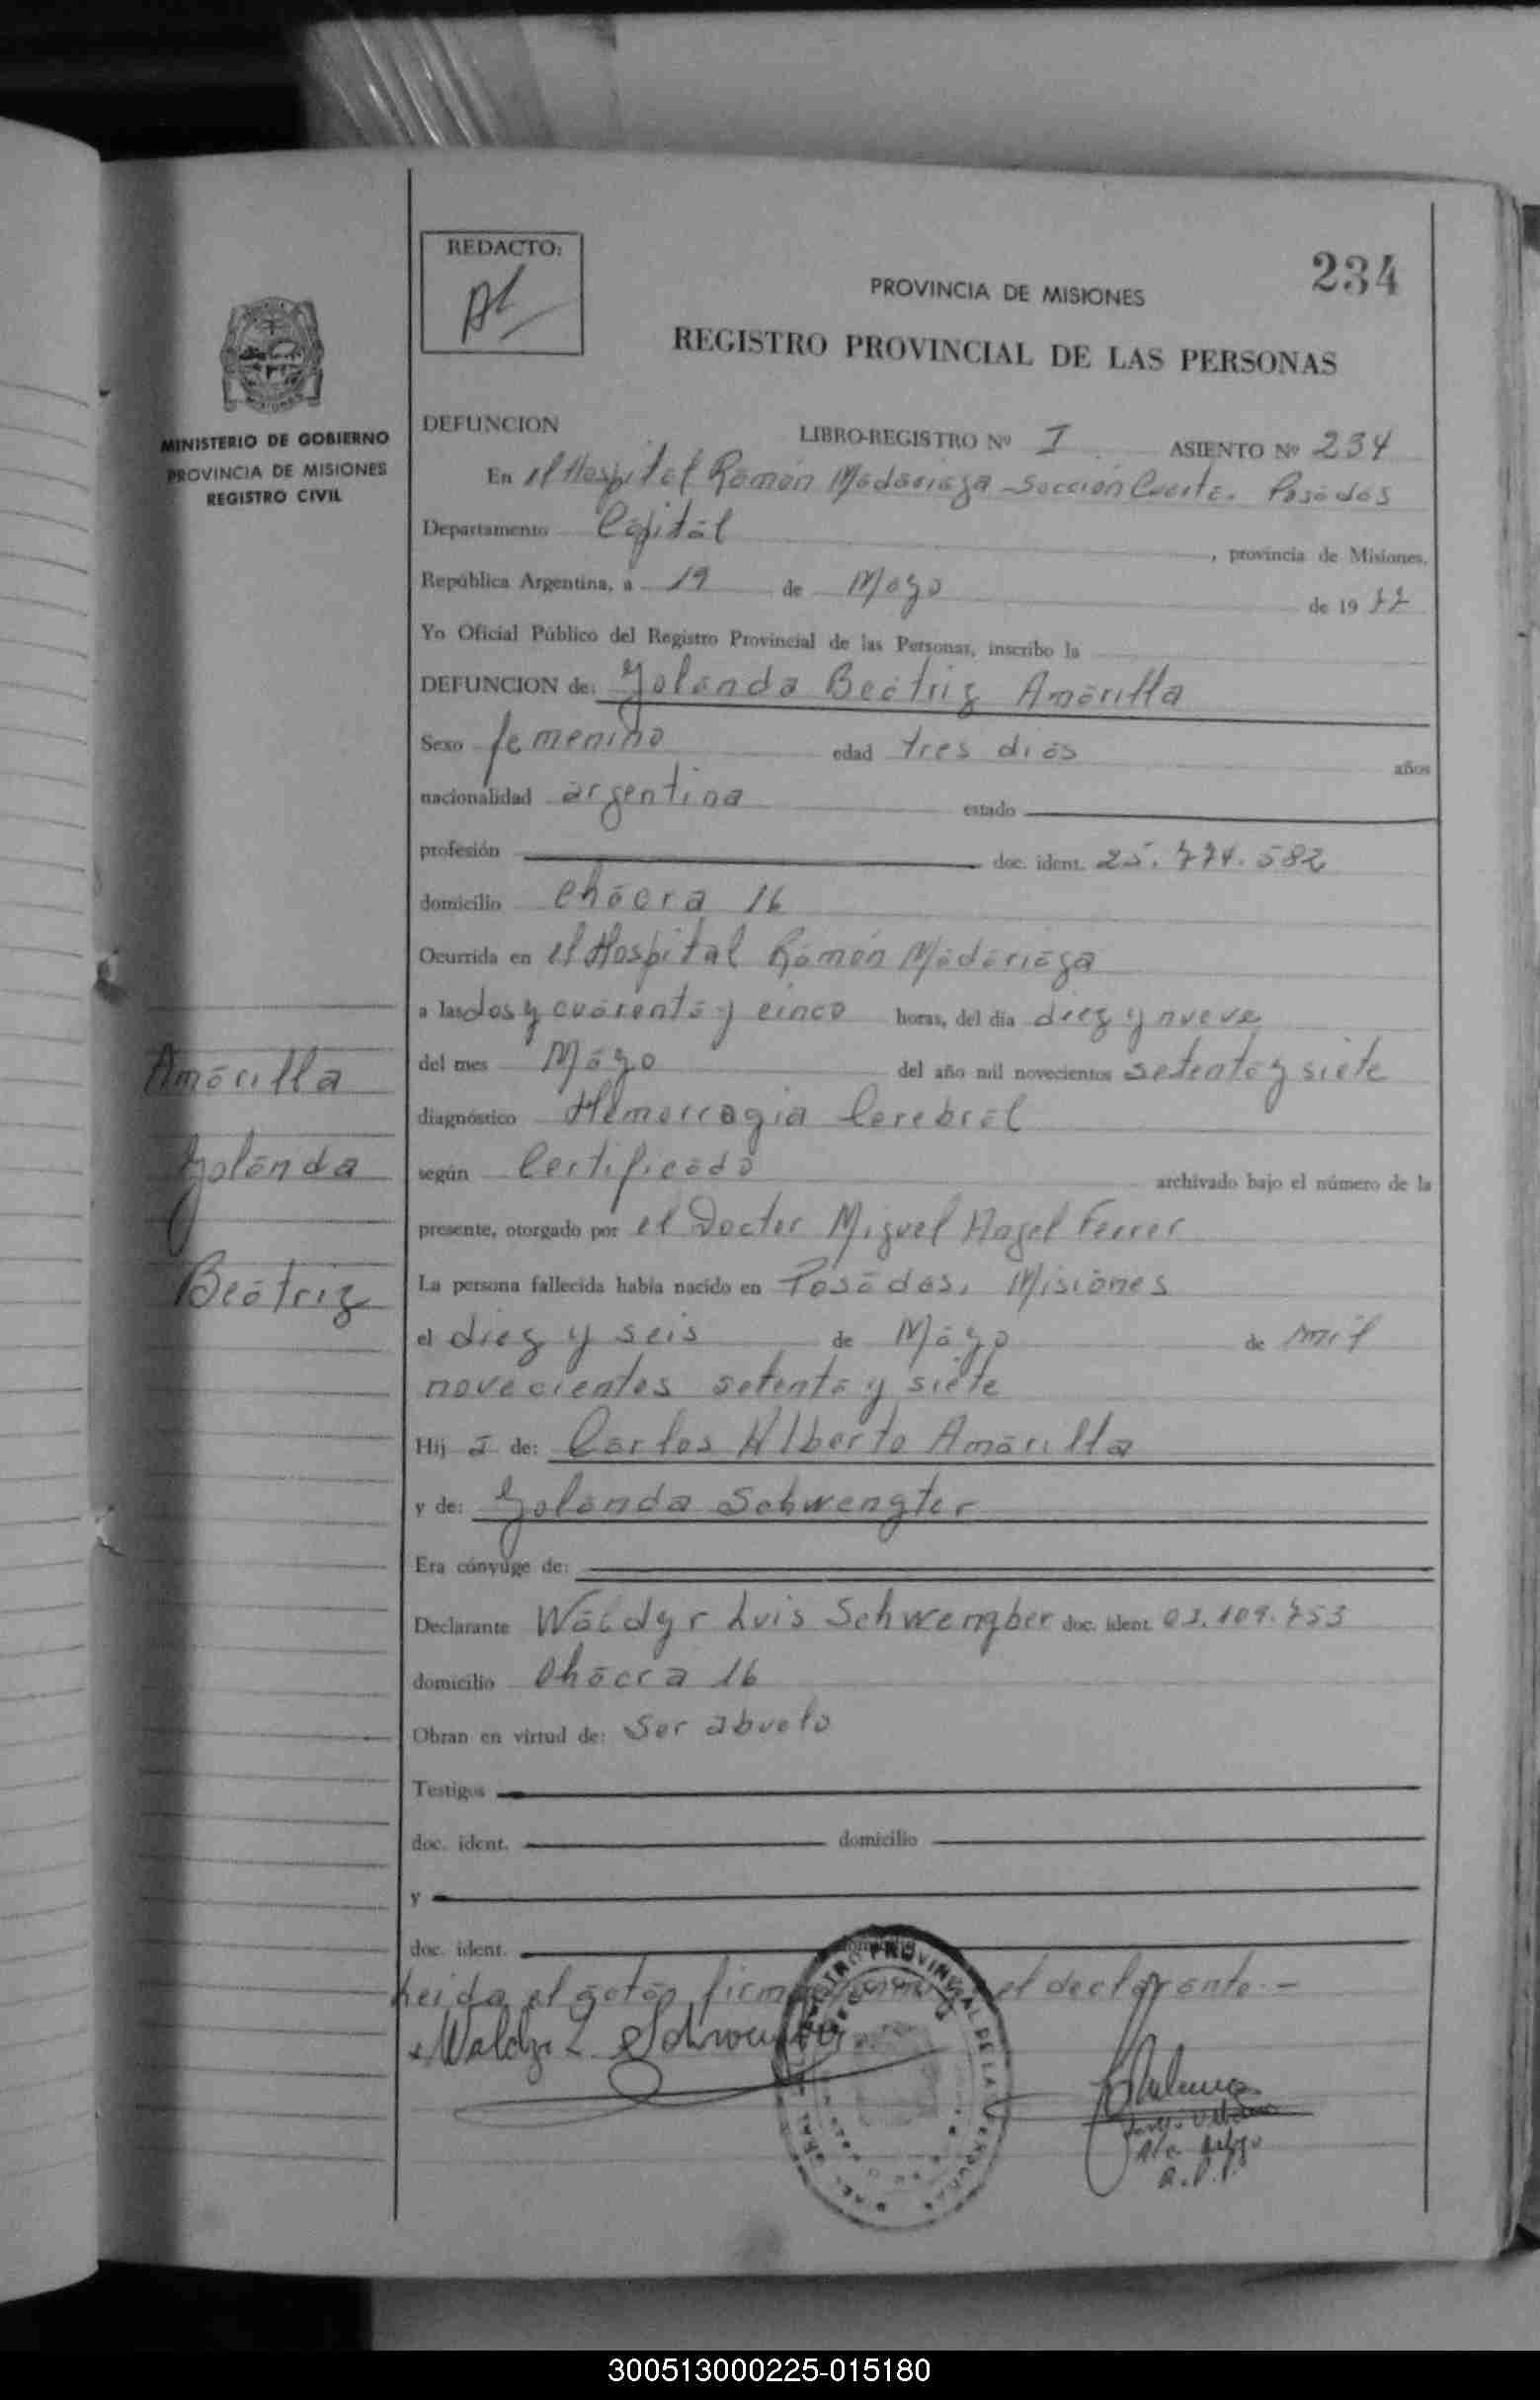 REDACTO:
234
PROVINCIA DE MISIONES
REGISTRO PROVINCIAL DE LAS PERSONAS
MINISTERIO DE GOBIERNO
PROVINCIA DE MISIONES
REGISTRO CIVIL
DEFUNCION LIBRO-REGISTRO Nº I ASIENTO Nº 234
En el Hospital Ramón Madariaga - Sección Cuarta. Posadas
Departamento Capital, provincia de Misiones,
República Argentina, a 19 de Mayo de 1977
Yo Oficial Público del Registro Provincial de las Personas, inscribo la
DEFUNCION de: Yolanda Beatriz Amarilla
Sexo femenino edad tres dias años
nacionalidad argentina estado
profesión doc. ident. 25.774.582
domicilio Chacra 16
Ocurrida en el Hospital Ramón Madariaga
a las dos y cuarenta y cinco horas, del día diez y nueve
del mes Mayo del año mil novecientos setenta y siete
diagnóstico Hemorragia Cerebral
según Certificado archivado bajo el número de la
presente, otorgado por el Doctor Miguel Angel Ferrer
La persona fallecida había nacido en Posadas, Misiones
el diez y seis de Mayo de mil
novecientos setenta y siete
Hij a de: Carlos Alberto Amarilla
y de: Yolanda Schwengter
Era cónyuge de:
Declarante Waldyr Luis Schwengber doc. ident. 03.109.753
domicilio Chacra 16
Obran en virtud de: Ser abuelo
Testigos
doc. ident. domicilio
y
doc. ident.
Leida el acta, firma el declarante.-
Amarilla
Yolanda
Beatriz
300513000225-015180